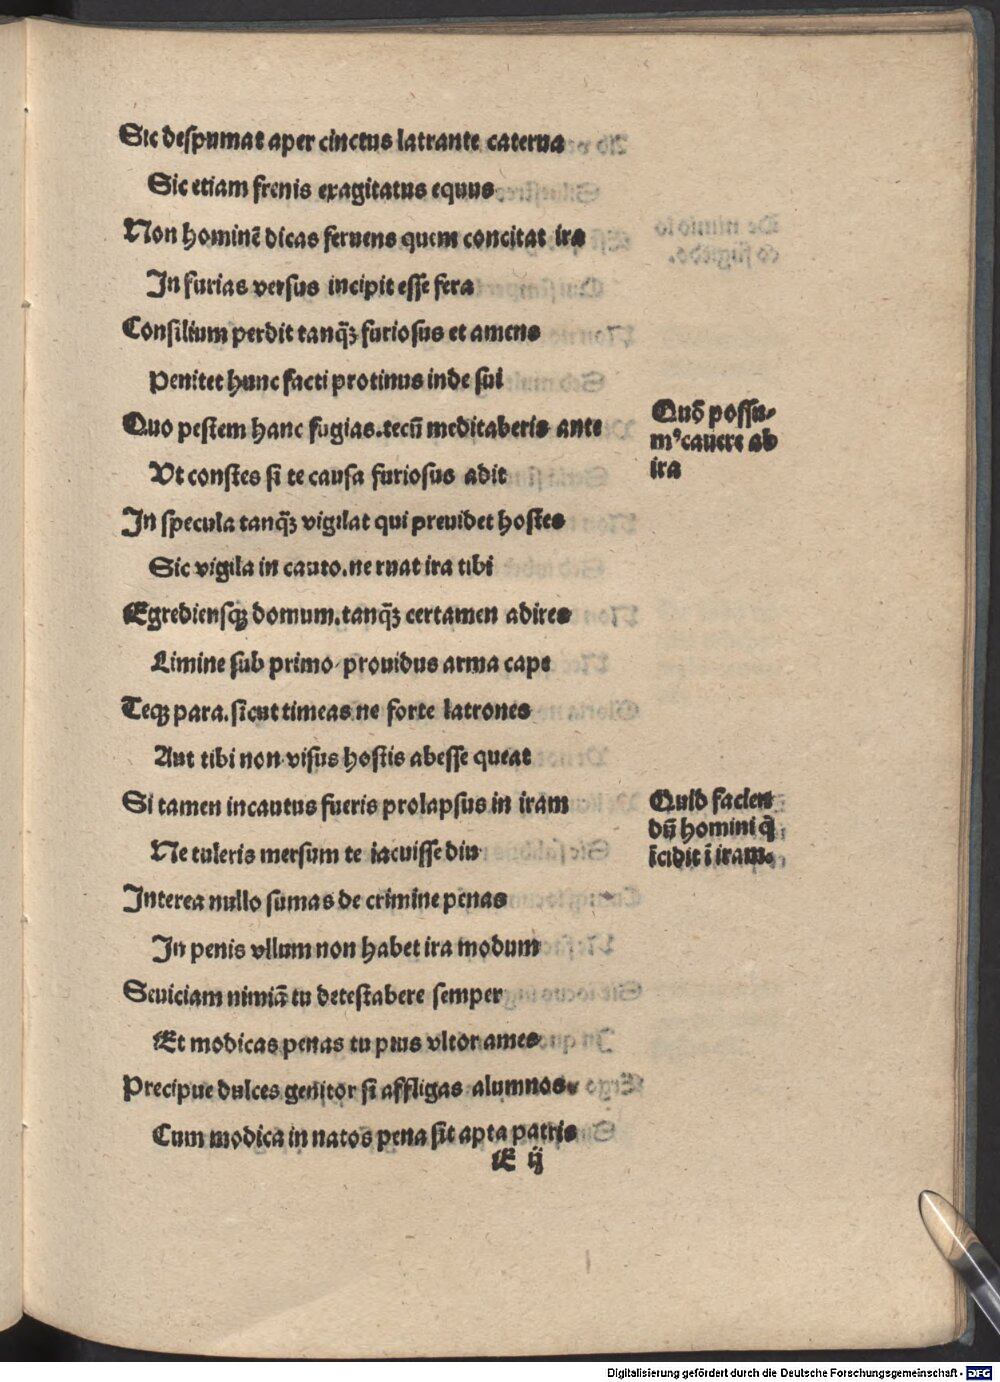 Sic despumat aper cinctus latrante caterua
Sic etiam frenis exagitatus equus
Non hominē dicas feruens quem concitat ira
In furias versus incipit esse fera
Consilium perdit tanq̄ꝫ furiosus et amens
Penitet hunc facti protinus inde sui
Quo pestem hanc fugias.tecū meditaberis ante
Quō possu-
mꝰ cauere ab
ira
Vt constes si te causa furiosus adit
In specula tanq̄ꝫ vigilat qui preuidet hostes
Sic vigila in cauto.ne ruat ira tibi
Egrediensqꝫ domum.tanq̄ꝫ certamen adires
Limine sub primo prouidus arma cape
Teqꝫ para.sicut timeas ne forte latrones
Aut tibi non visus hostis abesse queat
Si tamen incautus fueris prolapsus in iram
Quid facien
dū homini q̄
īcidit ī iram.
Ne tuleris mersum te iacuisse diu
Interea nullo sumas de crimine penas
In penis vllum non habet ira modum
Seuiciam nimiā tu detestabere semper
Et modicas penas tu pius vltor ames
Precipue dulces genitor si affligas alumnos.
Cum modica in natos pena sit apta patris
E ij
Digitalisierung gefördert durch die Deutsche Forschungsgemeinschaft - DFG